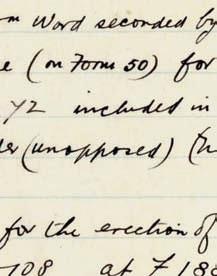 Word seconded by
(on Form 50) for
72 included in
(unopposed)
for the erection of
108 at £ 188